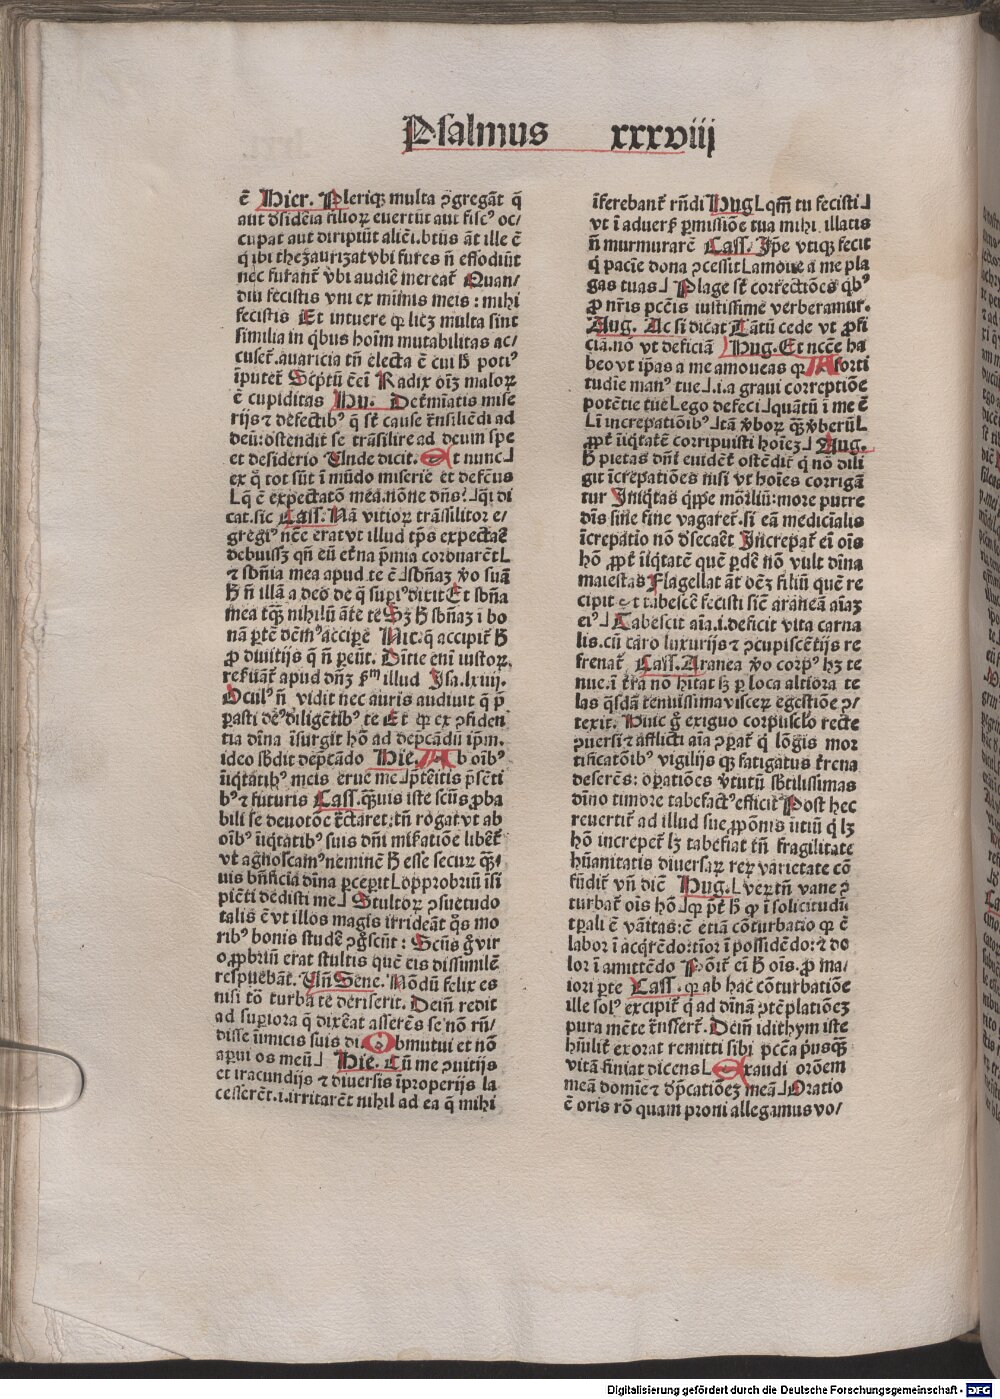 Psalmus xxxviij
ē Hier. Pleriqꝫ multa ꝯgregāt q̄
aut dſideia filioꝝ euertūt aut fiſcꝰ oc/
cupat aut diripiūt alieni. btūs āt ille ē
q̄ ibi theȝaurizat vbi fures n̄ effodiūt
nec furant̃ vbi audiē mereat̃ Quan/
diu feciſtis vni ex minis meis : mihi
feciſtis Et intuere ꝙ licꝫ multa ſint
ſimilia in qͥbus hoim̄ mutabilitas ac/
cuſet̃. auaricia tn̄ electa ē cui h̄ potiꝰ
īputet̃ Scͥptū ēei Radix oīꝫ maloꝝ
ē cupiditas Hu. Det̃mīatis miſe
rijs ⁊ defectibꝰ q̄ ſt̄ cauſe t̃nſiliēdi ad
deū: oſtendit ſe trāſilire ad deum ſpe
et deſiderio Unde dicit. Et nunc⅃
ex q̄ tot ſūt ī mūdo miſerie et defcūs
Lq̄ ē expectato mea. nōne dn̄s? ⅃ qͥ di
cat. ſic Caſſ. Nā vitioꝝ trāſſilitor e/
gregiꝰ nc̄ce erat vt illud tp̄s expectaē
debuiſꝫ qn̄ eū et̃na p̄mia coronarēt L
⁊ ſbn̄ia mea apud te ē ⅃ ſbn̄aꝫ v̄o ſuā
h̄ n̄ illā a deo de q̄ ſupiꝰ dixit Et ſbn̄a
mea tāqꝫ nihilū āte te Sꝫ h̄ ſbn̄aꝫ ī bo
nā ꝑtē dēmꝰ accipe Nic. q̄ accipit̃ h̄
ꝓ diuitijs q̄ n̄ ꝑeūt. Diuie eni iuſtoꝝ.
reſ̃uāt̃ apud dn̄ꝫ ẜm illud Iſa. lxiiij.
Oculꝰ n̄ vidit nec auris audiuit q̄ p̄
ꝑaſti deꝰ diligētibꝰ te Et ꝙ ex ꝯfiden
tia diuīa īſurgit hō ad dep̄cādū ip̄m.
ideo ſbdit dep̄cādo Hie. Ab oībꝰ
iīqͥtatibꝰ meis erue me⅃ p̄teitis p̄ſēti
bꝰ ⁊ futuris Caſſ. qꝫuis iſte ſcūs ꝓba
bili ſe deuotōe t̃ctaret: tn̄ rogat vt ab
oībꝰ iīqͥtatibꝰ ſuis dn̄i miẜatiōe libet̃
vt agnoſcamꝰ neminē h̄ eſſe ſecuꝝ qꝫ/
uis bn̄ficia diuīa ꝑceperit L opprobriū īſi
piēti dediſti me ⅃ Stultoꝝ ꝯſuetudo
talis ē vt illos magis irrideāt qͦs mo
ribꝰ bonis ſtude ꝯg̃ſcn̄t : Scūs g̃ vir
opprobriū erat ſtultis quē eis diſſimilē
reſpuebāt. Un̄ Sene. Nōdū felix es
niſi tō turba te deriſerit. Dein̄ redit
ad ſupiora q̄ dixēat aſſerēs ſe nō rn̄/
diſſe inimicis ſuis di. Obmutui et nō
aꝑui os meū ⅃ Hie. Cū me ꝯuitijs
et iracundijs ⁊ diuerſis īproperijs la
ceſſerēt. i. irritarēt nihil ad ea q̄ mihi
īferebant̃ rn̄di Hug L qm̄ tu feciſti ⅃
vt ī aduerẜ ꝑmiſſiōe tua mihi illatis
n̄ murmurarē Caſſ. Ip̄e vtiqꝫ fecit
q̄ pacie dona ꝯceſſit L amoue a me pla
gas tuas ⅃ Plage ſt̄ correctiōes qͥbꝰ
ꝓ nr̄is pccīs iuſtiſſime verberamur.
Aug. Ac ſi dicat Tātū cede vt ꝓfi
ciā. nō vt deficiā Hug. Et nccē ha
beo vt ip̄as a me amoueas ꝙ A forti
tudie manꝰ tue ⅃ .i. a graui correptiōe
potētie tue L ego defeci ⅃ quātū ī me ē
L ī increpatiōibꝰ ⅃ tā v̄boꝝ qꝫ v̄berū L
ꝓpt̃ iīqͥtatē corripuiſti hoīeꝫ ⅃ Aug.
h̄ pietas dn̄i euidēt̃ oſtēdit̃ q̄ nō dili
git īcrepatiōes niſi vt hoīes corrigā
tur Iniqͥtas qͥppe mōrliū: more putre
dīs ſine fine vagaret̃. ſi eā medicīalis
īcrepatio nō dſecaēt Increpat̃ ei oīs
hō ꝓpt̃ iīqͥtatē quē ꝑdē nō vult diuīa
maieſtas Flagellat āt oēꝫ filiū quē re
cipit et tabeſcē feciſti ſic̄ araneā aīaꝫ
eiꝰ ⅃ Tabeſcit aīa .i. deficit vita carna
lis. cū caro luxurijs ⁊ ꝯcupiſcētijs re
frenat̃ Caſſ. Aranea v̄o corpꝰ hꝫ te
nue. ī t̃ra nō hītat ſꝫ ꝑ loca altiora te
las qͣſdā tenuiſſima viſceꝝ egeſtiōe ꝯ/
texit. Huic g̃ exiguo corpuſclo recte
ꝯuerſi ⁊ afflicti aīa ꝯꝑat̃ q̄ lōgis mor
tificatōibꝰ vigilijs qꝫ fatigatus t̃rena
deſerēs: oꝑatiōes v̄tutū ſbtiliſſimas
diuīno timore tabefactꝰ efficit Poſt hec
reuertit̃ ad illud ſue ꝓpōnis īitiū q̄ lꝫ
hō increpet̃ lꝫ tabefiat tn̄ fragilitate
hūanitatis diuerſaꝝ reꝝ varietate cō
fūdit̃ vn̄ dicē Hug. L veꝝ tn̄ vane ꝯ
turbat̃ oīs hō ⅃ ꝙ p̄t̃ h̄ ꝙ ī ſolicitudū
tꝑali ē vāitas: ē etiā cōturbatio ꝙ ē
labor ī acq̄rēdo: tīor ī poſſidēdo: ⁊ do
lor ī amittēdo Pōit̃ ei h̄ oīs. ꝓ ma/
iori ꝑte Caſſ. ꝙ ab hac cōturbatiōe
ille ſolꝰ excipit̃ q̄ ad diuīnā ꝯtēplatiōeꝫ
pura mēte t̃nſfert̃. Dein̄ idithym iſte
hūilit̃ exorat remitti ſibi pccā p̄uſqꝫ
vitā finiat dicens L Exaudi orōem
meā domīe ⁊ dp̄catiōeꝫ meā ⅃ Oratio
ē oris rō quam proni allegamus vo/
Digitalisierung gefördert durch die Deutsche Forschungsgemeinschaft - DFG